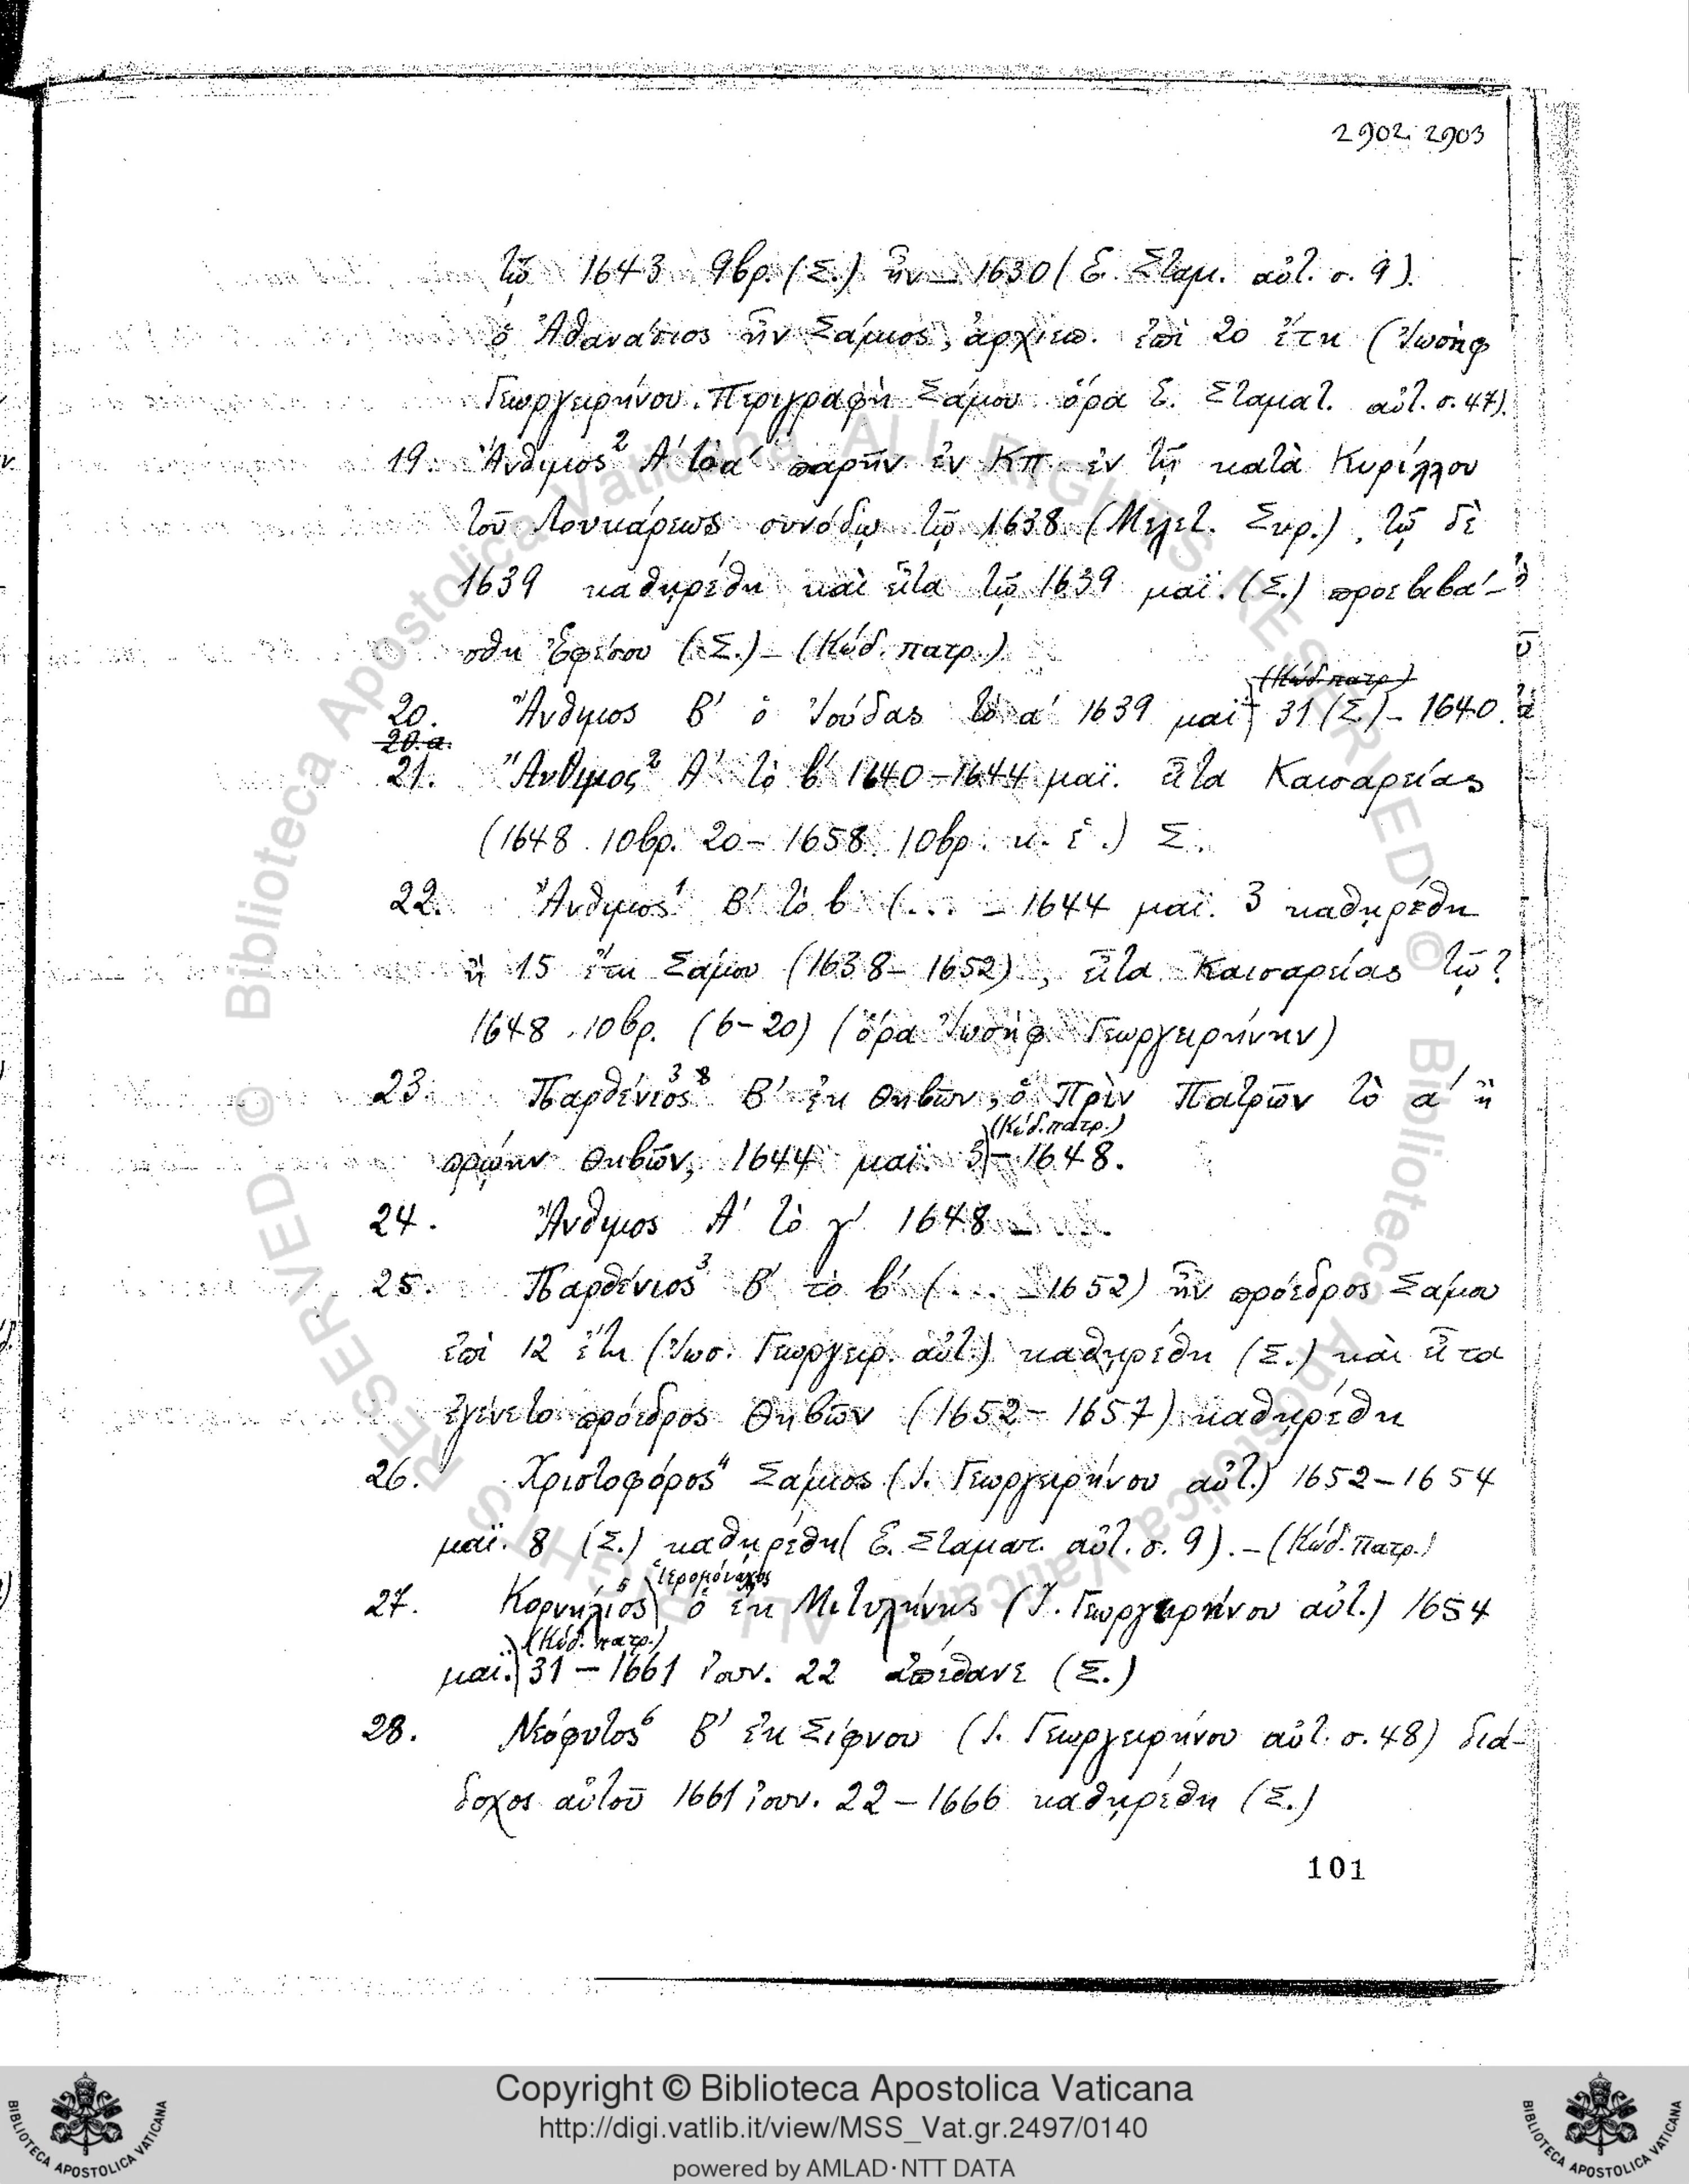 2902. 2903
τῷ 1643 9βρ. (Σ.) ἦν — 1630 (Ε. Σταμ. αὐτ. σ. 9).
ὁ Ἀθανάσιος ἦν Σάμιος, ἀρχιεπ. ἐπὶ 20 ἔτη (Ἰωσὴφ
Γεωργειρήνου. Περιγραφὴ Σάμου ὅρα Ε. Σταματ. αὐτ. σ. 47).
19. Ἄνθιμος² Α' τὸ α' παρῆν ἐν Κπ. ἐν τῇ κατὰ Κυρίλλου
τοῦ Λουκάρεως συνόδῳ τῷ 1638 (Μελετ. Συρ.), τῷ δὲ
1639 καθῃρέθη καὶ εἶτα τῷ 1639 μαΐ. (Σ.) προεβιβά-
σθη Ἐφέσου (Σ.) – (Κώδ. πατρ.)
(Κώδ. πατρ.)
20. Ἄνθιμος Β' ὁ Ἰούδας τὸ α' 1639 μαΐ 31 (Σ.) – 1640.
20.α.
21. Ἄνθιμος² Α' τὸ β' 1640 – 1644 μαΐ. εἶτα Καισαρείας
(1648. 10βρ. 20 – 1658. 10βρ. κ. ἑ.) Σ.
22. Ἄνθιμος¹ Β' τὸ β (... – 1644 μαΐ. 3 καθῃρέθη
ἢ 15 ἔτη Σάμου (1638 – 1652), εἶτα Καισαρείας τῷ ?
1648. 10βρ. (6–20) (ὅρα Ἰωσὴφ Γεωργειρήνην)
23. Παρθένιος³ ⁸ Β' ἐκ Θηβῶν, ὁ Πρὶν Πατρῶν τὸ α' ἢ
(Κώδ. πατρ.)
πρῴην Θηβῶν, 1644 μαΐ. 3 – 1648.
24. Ἄνθιμος Α' τὸ γ' 1648 – ...
25. Παρθένιος³ Β' τὸ β' (... – 1652) ἦν πρόεδρος Σάμου
ἐπὶ 12 ἔτη (Ἰωσ. Γεωργειρ. αὐτ.) καθῃρέθη (Σ.) καὶ εἶτα
ἐγένετο πρόεδρος Θηβῶν (1652 – 1657) καθῃρέθη
26. Χριστοφόρος⁴ Σάμιος (Ἰ. Γεωργειρήνου αὐτ.) 1652 – 1654
μαΐ. 8 (Σ.) καθῃρέθη (Ε. Σταματ. αὐτ. σ. 9). – (Κώδ. Πατρ.)
ἱερομόναχος
27. Κορνήλιος⁵ ὁ ἐκ Μιτυλήνης (Ἰ. Γεωργειρήνου αὐτ.) 1654
(Κώδ. πατρ.)
μαΐ. 31 – 1661 ἰουν. 22 ἀπέθανε (Σ.)
28. Νεόφυτος⁶ Β' ἐκ Σίφνου (Ἰ. Γεωργειρήνου αὐτ. σ. 48) διά-
δοχος αὐτοῦ 1661 ἰουν. 22 – 1666 καθῃρέθη (Σ.)
101
© Biblioteca Apostolica Vaticana ALL RIGHTS RESERVED © Biblioteca Apostolica Vaticana ALL RIGHTS RESERVED
Copyright © Biblioteca Apostolica Vaticana
http://digi.vatlib.it/view/MSS_Vat.gr.2497/0140
powered by AMLAD·NTT DATA
BIBLIOTECA APOSTOLICA VATICANA
BIBLIOTECA APOSTOLICA VATICANA